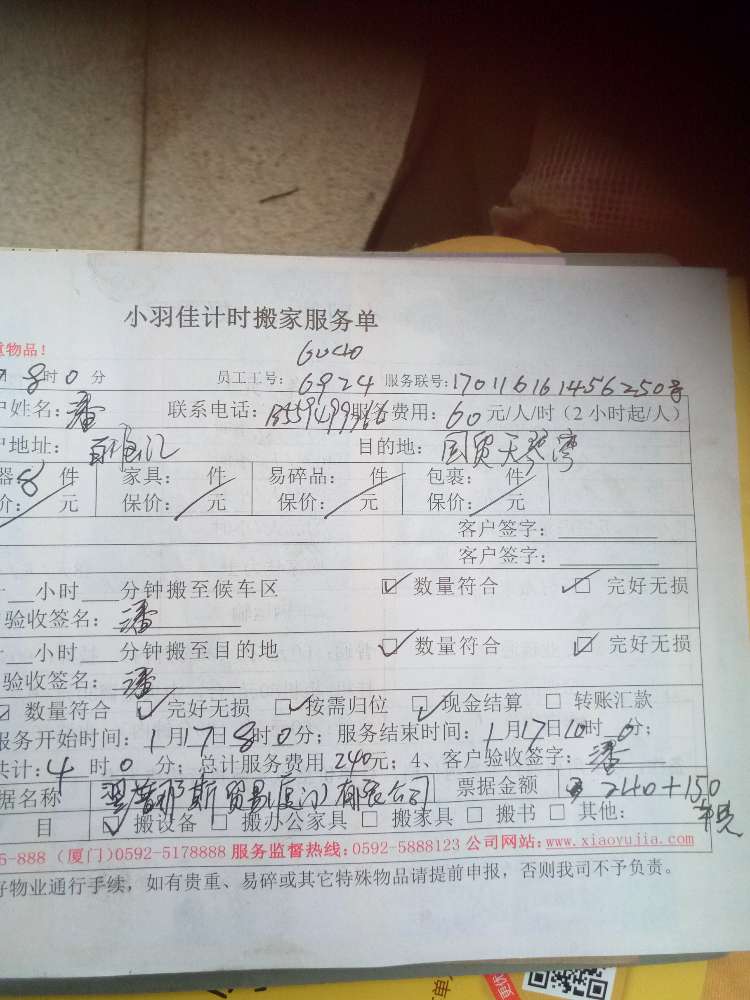 小羽佳计时搬家服务单
重物品!
8时0分 员工工号: 6924 服务联号:170116161456250号
户姓名:潘 联系电话: 服务费用:60元/人/时(2小时起/人)
户地址: 目的地:国贸天琴湾
器8件 家具: 件 易碎品: 件 包裹: 件
价: 元 保价: 元 保价: 元 保价: 元
客户签字:
客户签字:
小时 分钟搬至候车区 ☑ 数量符合 ☑ 完好无损
验收签名:潘
小时 分钟搬至目的地 ☑ 数量符合 ☑ 完好无损
验收签名:潘
☑ 数量符合 ☑ 完好无损 ☑ 按需归位 ☑ 现金结算 □ 转账汇款
服务开始时间:1月17日8时0分;服务结束时间:1月17日10时0分;
共计:4时0分;总计服务费用240元;4、客户验收签字:潘
据名称 翌普那斯贸易(厦门)有限公司 票据金额 240+150
目 ☑ 搬设备 □ 搬办公家具 □ 搬家具 □ 搬书 □ 其他: 车费
5-888 (厦门)0592-5178888 服务监督热线:0592-5888123 公司网站:www.xiaoyujia.com
好物业通行手续,如有贵重、易碎或其它特殊物品请提前申报,否则我司不予负责。